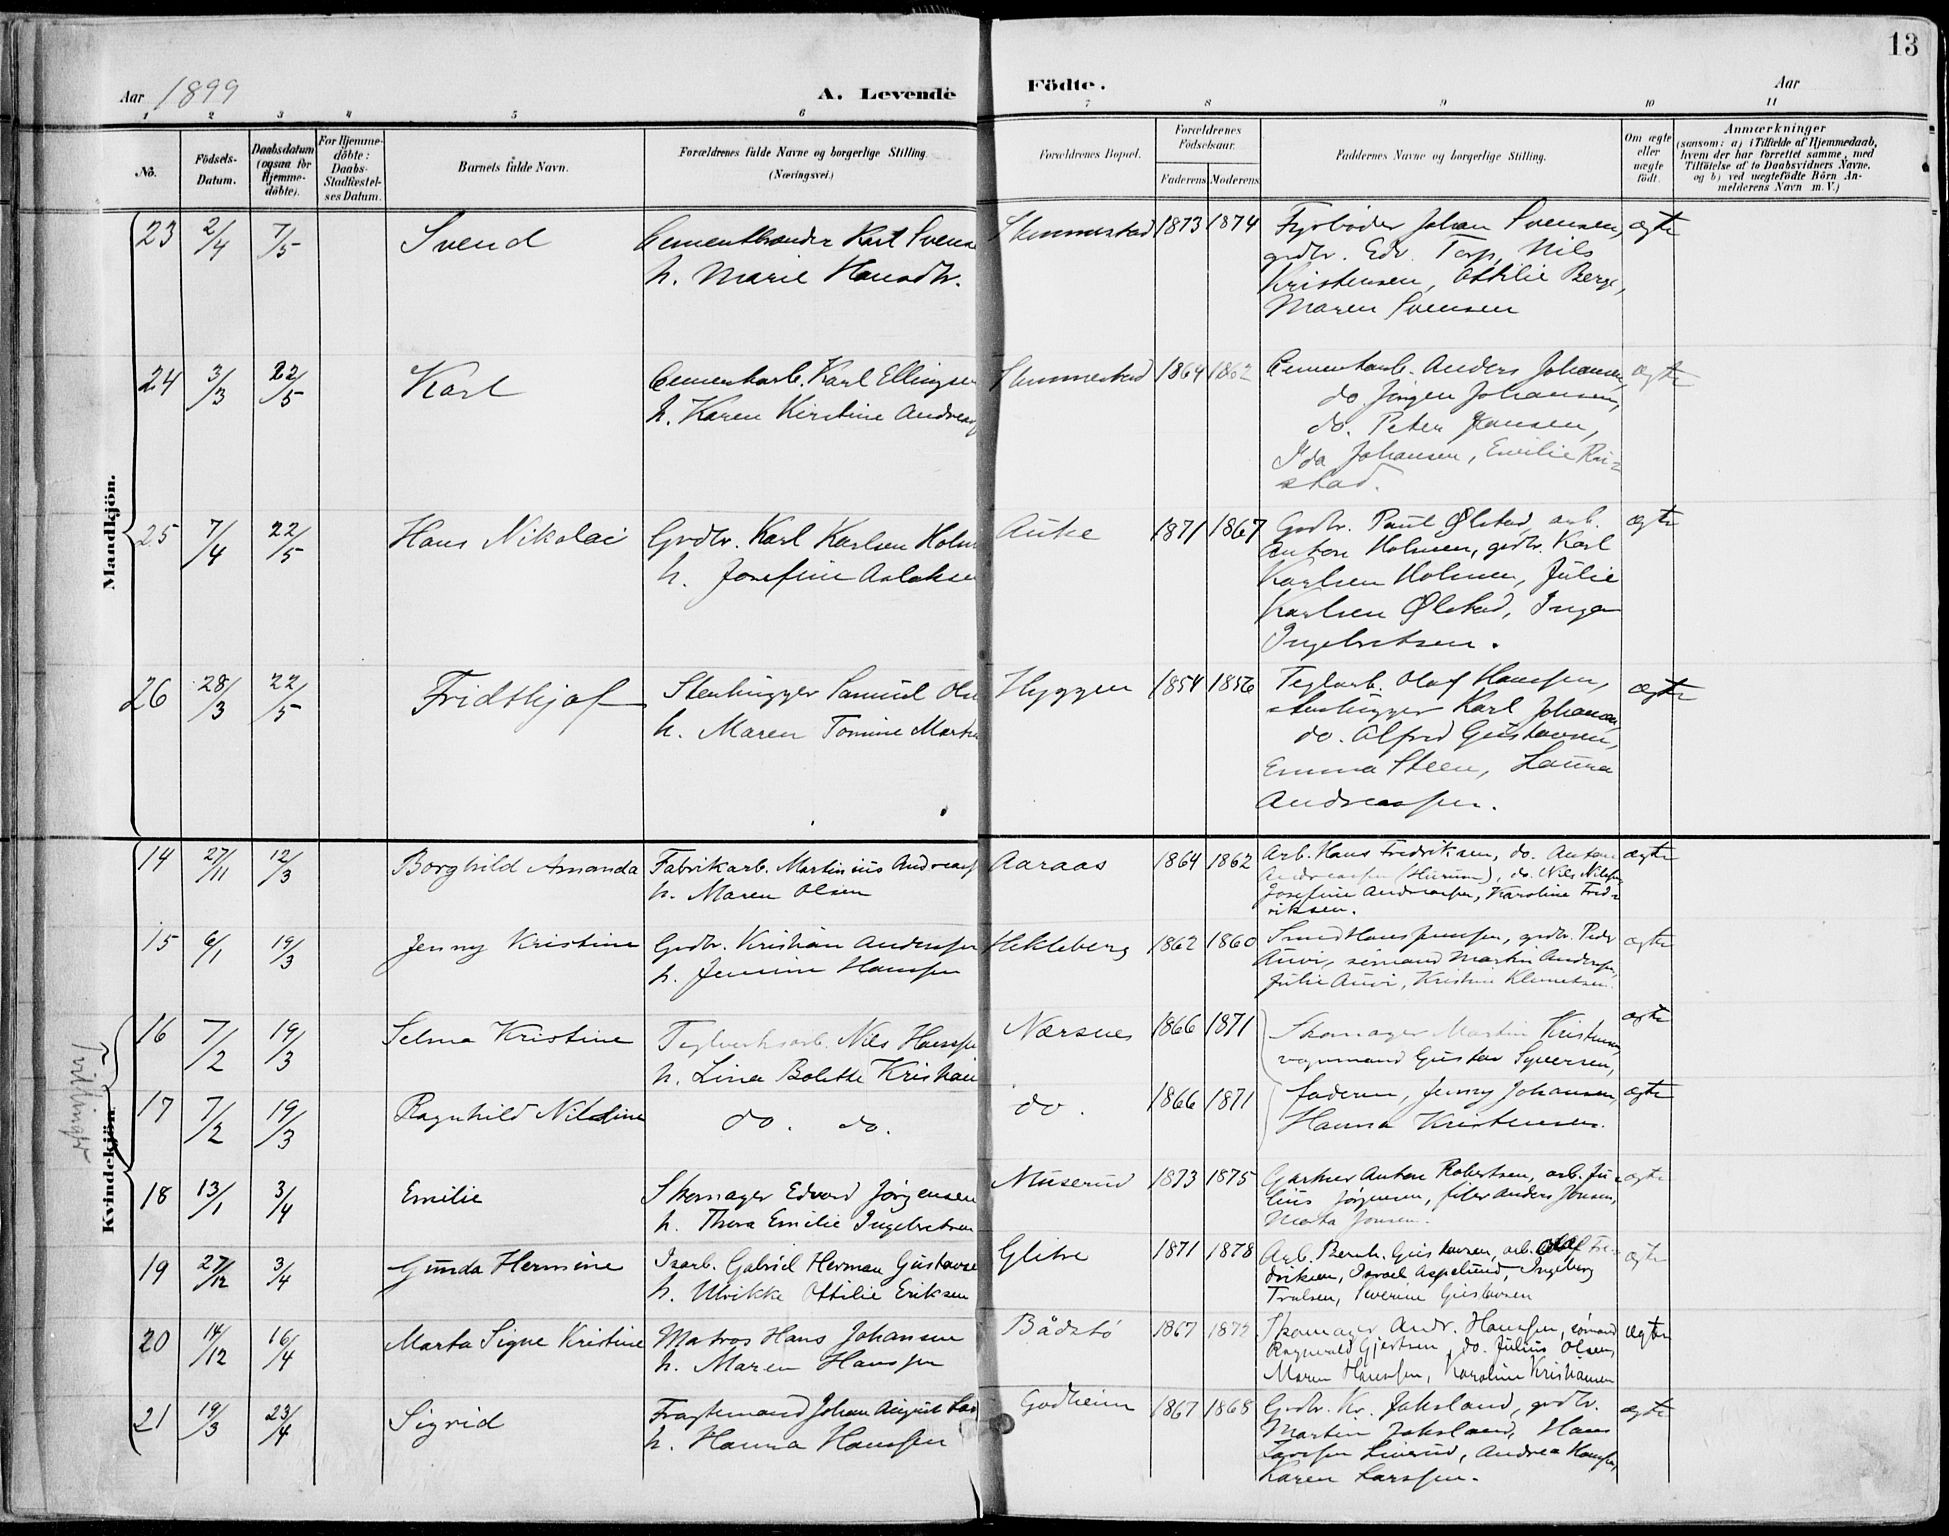 13
Aar 1899
A. Levende
Födte.
Aar
1 2 3 4 5 6 7 8 9 10 11
No.
Födsels-Datum.
Daabsdatum (ogsaa for Hjemme-döbte).
For Hjemme-döbte: Daabs-Stadfæstel-ses Datum.
Barnets fulde Navn.
Forældrenes fulde Navne og borgerlige Stilling. (Næringsvei.)
Forældrenes Bopæl.
Forældrenes Födselsaar.
Faderens Moderens
Faddernes Navne og borgerlige Stilling.
Om ægte eller uægte födt.
Anmærkninger
(saasom: a) i Tilfælde af Hjemmedaab,
hvem der har forrettet samme, med
Tilföielse af to Daabsvidners Navne.
og b) ved uægtefödte Börn An-
melderens Navn m. V.)
Mandkjön.
23 2/4 7/5 Svend Cementbrænder Karl Svens Slemmestad 1873 1874 Fyrbøder Johan Svensen, ægte
h. Marie Hansdtr. grdbr. Edv. Torp, Nils
Kristensen, Ottilie Berge,
Maren Svensen
24 3/3 22/5 Karl Cementarb. Karl Ellingsen Slemmestad 1864 1862 Cementarb. Anders Johansen, ægte
h. Karen Kirstine Andreas do. Jörgen Johansen,
do. Peter Hansen,
Ida Johansen, Emilie Rui-
stad.
25 7/4 22/5 Hans Nikolai Grdbr. Karl Karlsen Holm Auke 1871 1867 Grdbr. Paul Ølstad, arb. ægte
h. Josefine Aslaksen Anton Holmen, grdbr. Karl
Karlsen Holmen, Julie
Karlsen Ølstad, Inga
Ingebretsen.
26 28/3 22/5 Fridthjof Stenhugger Samuel Ols Hyggen 1854 1856 Teglarb. Olaf Hanssen, ægte
h. Maren Tomine Martin stenhugger Karl Johansen,
do. Alfred Gustavsen,
Emma Steen, Laura
Andreassen.
Kvindekjön.
14 27/11 12/3 Borghild Amanda Fabrikarb. Martinius Andreass Aaraas 1864 1862 Arb. Hans Fredriksen, do. Anton ægte
h. Maren Olsen Andreassen (Hurum), do. Nils Nilssen,
Josefine Andreassen, Karoline Fred-
riksen.
15 6/1 19/3 Jenny Kristine Grdbr. Kristian Anderssen Hekleberg 1862 1860 Smed Hans Jenssen, grdbr. Peder ægte
h. Jensine Hanssen Auvi, sømand Martin Anderssen,
Julie Auvi, Kristine Klemetsen.
Tvillinger
16 7/2 19/3 Selma Kristine Teglverksarb. Nils Hanssen Nærsnes 1866 1871 Skomager Martin Kristensen, ægte
h. Lina Bolette Kristian vognmand Gustav Syversen,
17 7/2 19/3 Ragnhild Nilsine do. do. do. 1866 1871 faderen, Jenny Johansen, ægte
Hanna Kristensen.
18 13/1 3/4 Emilie Skomager Edvard Jörgensen Muserud 1873 1875 Gartner Anton Robertsen, arb. Ju- ægte
h. Thora Emilie Ingebretsen lius Jörgensen, filer Anders Jonsen,
Marta Jonsen.
19 27/12 3/4 Gunda Hermine Isarb. Gabriel Herman Gustavse Glitre 1871 1878 Arb. Bernh. Gustavsen, arb. Olaf Fre- ægte
h. Ulrikke Ottilie Eriksen driksen, Israel Aspelund, Ingeborg
Trulsen, Severine Gustavsen
20 14/12 16/4 Marta Signe Kristine Matros Hans Johansen Bådstø 1867 Skomager Andr. Hanssen, sømand ægte
h. Maren Hanssen Ragnvald Gjertsen, do. Julius Olsen,
Maren Hanssen, Karoline Kristiansen
21 19/3 23/4 Sigrid Fragtemand Johan August Lar Godheim 1867 1868 Grdbr. Kr. Jaksland, grdbr. ægte
h. Hanna Hanssen Martin Jaksland, Hans
Larssen Linerud, Andrea Hanssen,
Karen Larssen.